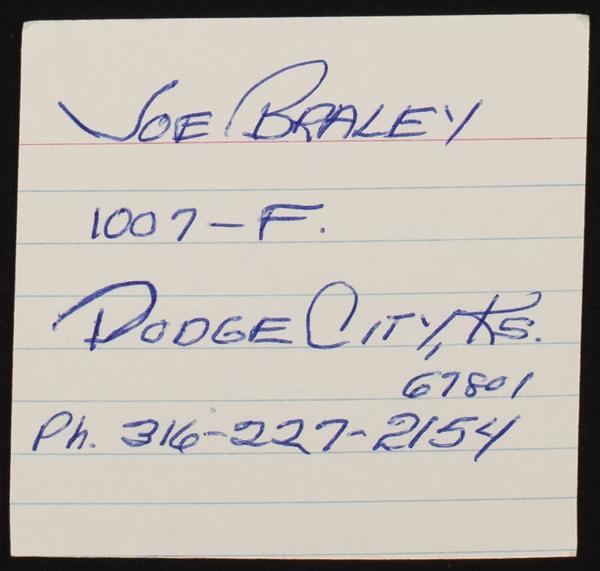 JOE BRALEY
1007-F.
DODGE CITY, KS.
67801
Ph. 316-227-2154